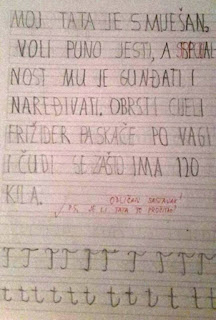 MOJ TATA JE SMIJEŠAN.
VOLI PUNO JESTI, A SPECIJAL
NOST MU JE GUNĐATI I
NAREĐIVATI. OBRSTI CIJELI
FRIŽIDER PA SKAČE PO VAGI
I ČUDI SE ZAŠTO IMA 120
KILA.
ODLIČAN SASTAVAK!
JE LI TATA TO PROČITAO?
T T T T T T T T T
t t t t t t t t t